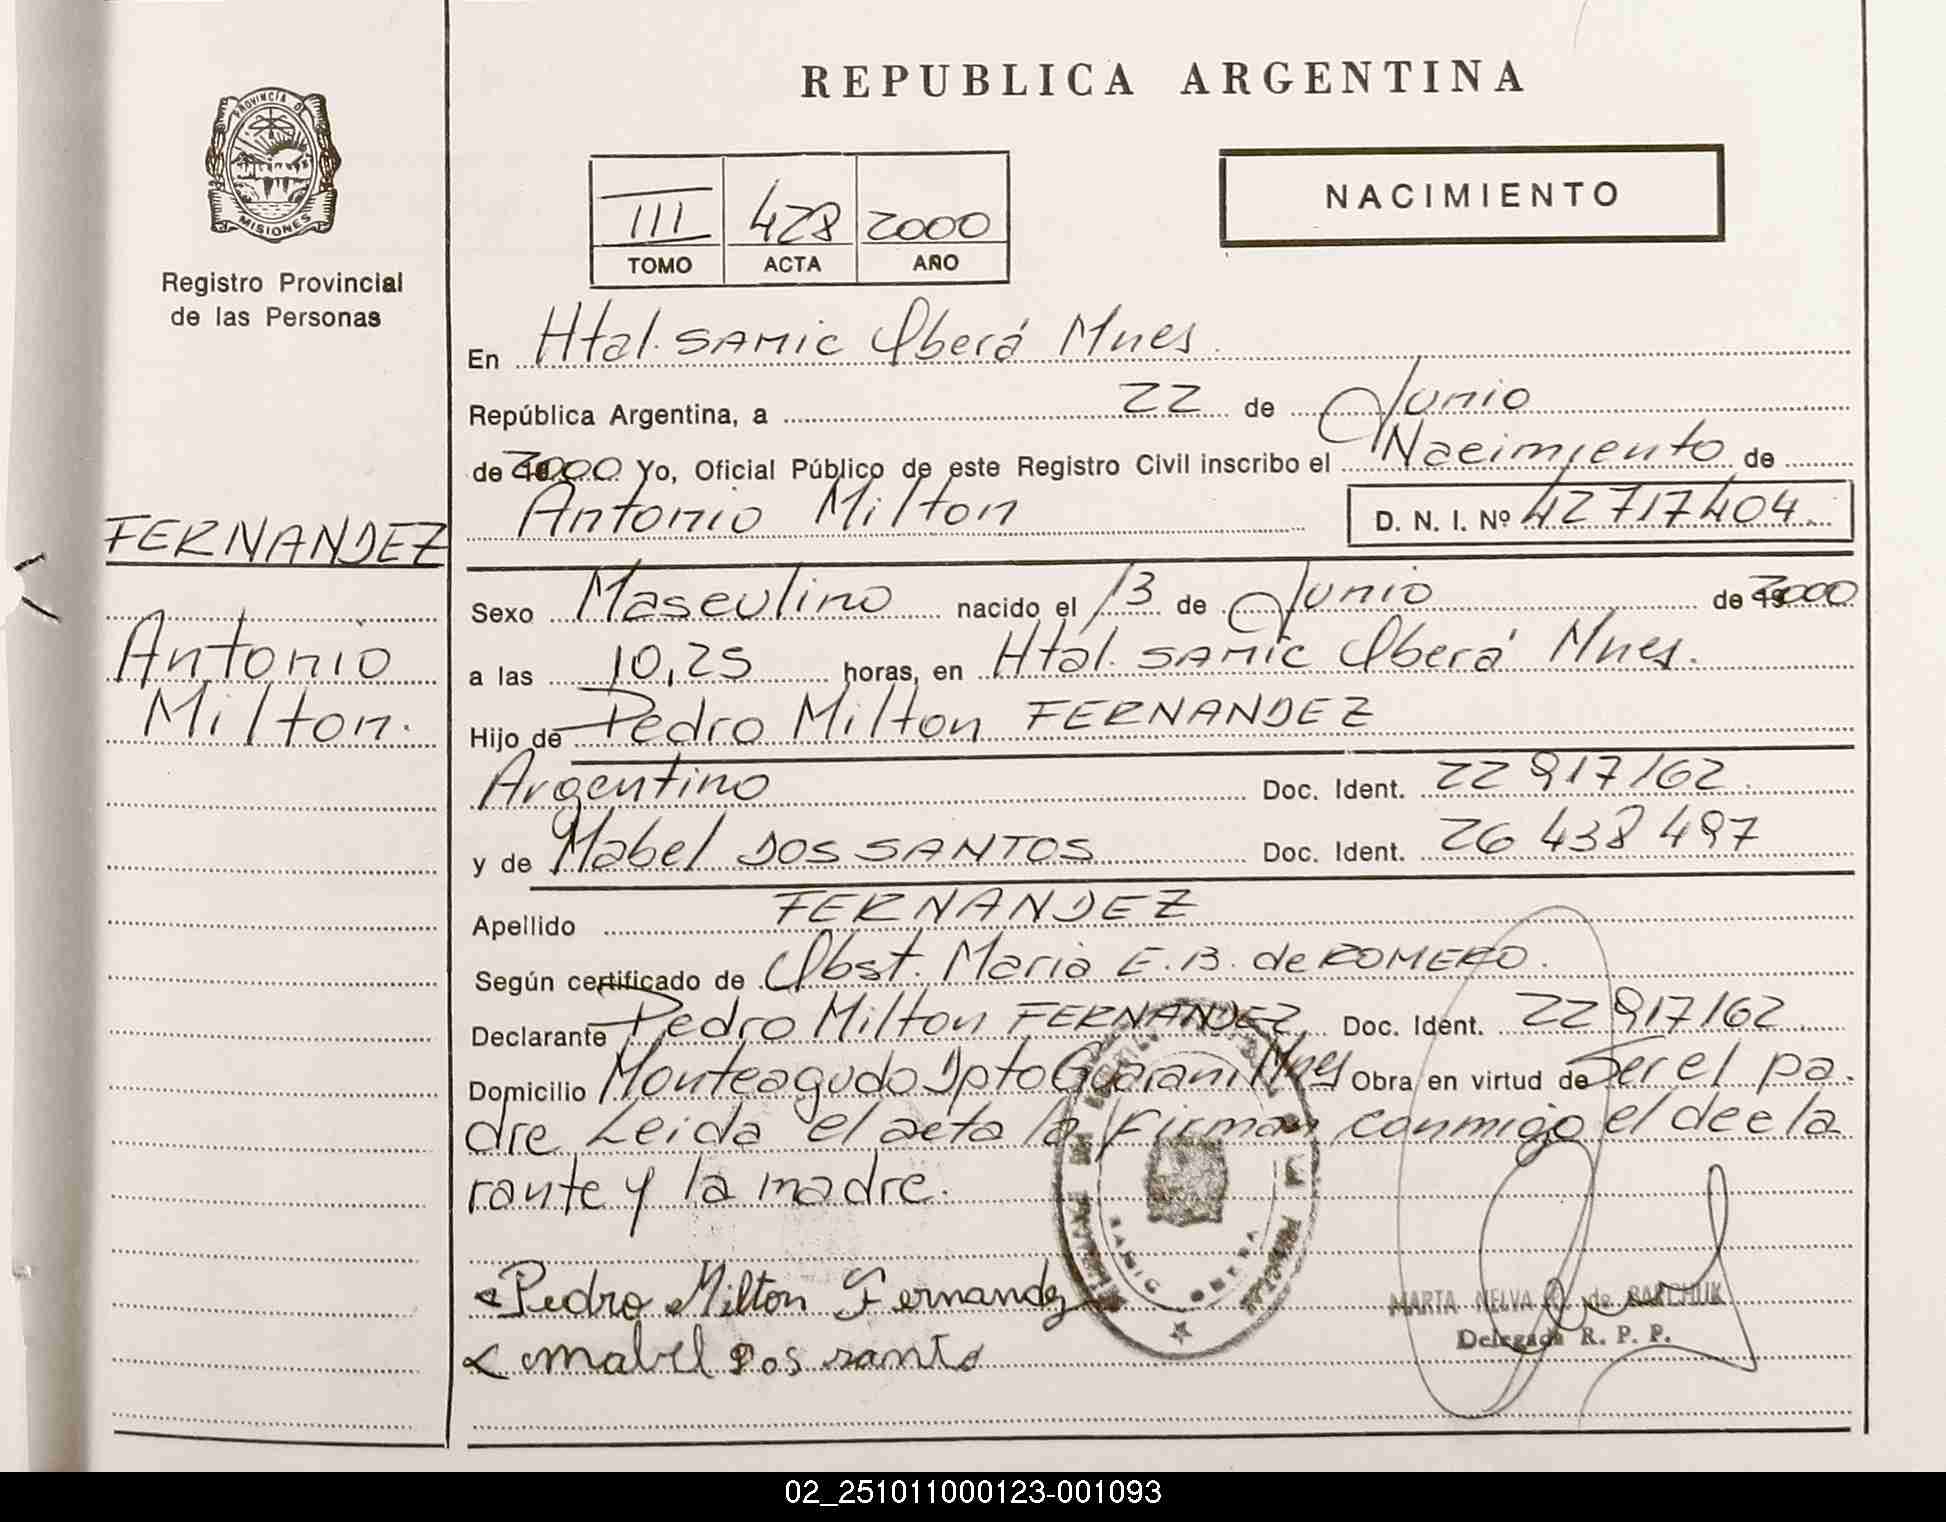 REPUBLICA ARGENTINA
PROVINCIA DE MISIONES
Registro Provincial
de las Personas
III 428 2000
TOMO ACTA AÑO
NACIMIENTO
En Htal. SAMIC Oberá Mnes.
República Argentina, a 22 de Junio
de 2000 Yo, Oficial Público de este Registro Civil inscribo el Nacimiento de
Antonio Milton D. N. I. Nº 42717404
FERNANDEZ
Antonio
Milton.
Sexo Masculino nacido el 13 de Junio de 2000
a las 10,25 horas, en Htal. SAMIC Oberá Mnes.
Hijo de Pedro Milton FERNANDEZ
Argentino Doc. Ident. 22 917162
y de Mabel DOS SANTOS Doc. Ident. 26 438 497
Apellido FERNANDEZ
Según certificado de Obst. Maria E. B. de ROMERO.
Declarante Pedro Milton FERNANDEZ Doc. Ident. 22 917162
Domicilio Monteagudo Dpto Guarani Mnes Obra en virtud de Ser el pa-
dre Leida el acta la firman conmigo el decla
rante y la madre.
Pedro Milton Fernandez
mabel dos santo
SAMIC OBERA
MARTA NELVA de
Delegada R. P. P.
02_251011000123-001093